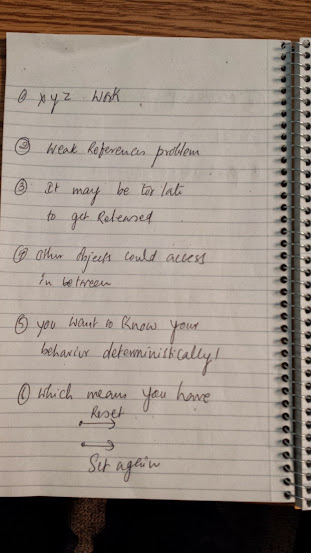 ① xyz work
② Weak References problem
③ It may be too late
to get Released
④ Other objects could access
in between
⑤ you want to know your
behavior deterministically!
⑥ Which means you have
Reset
Set again